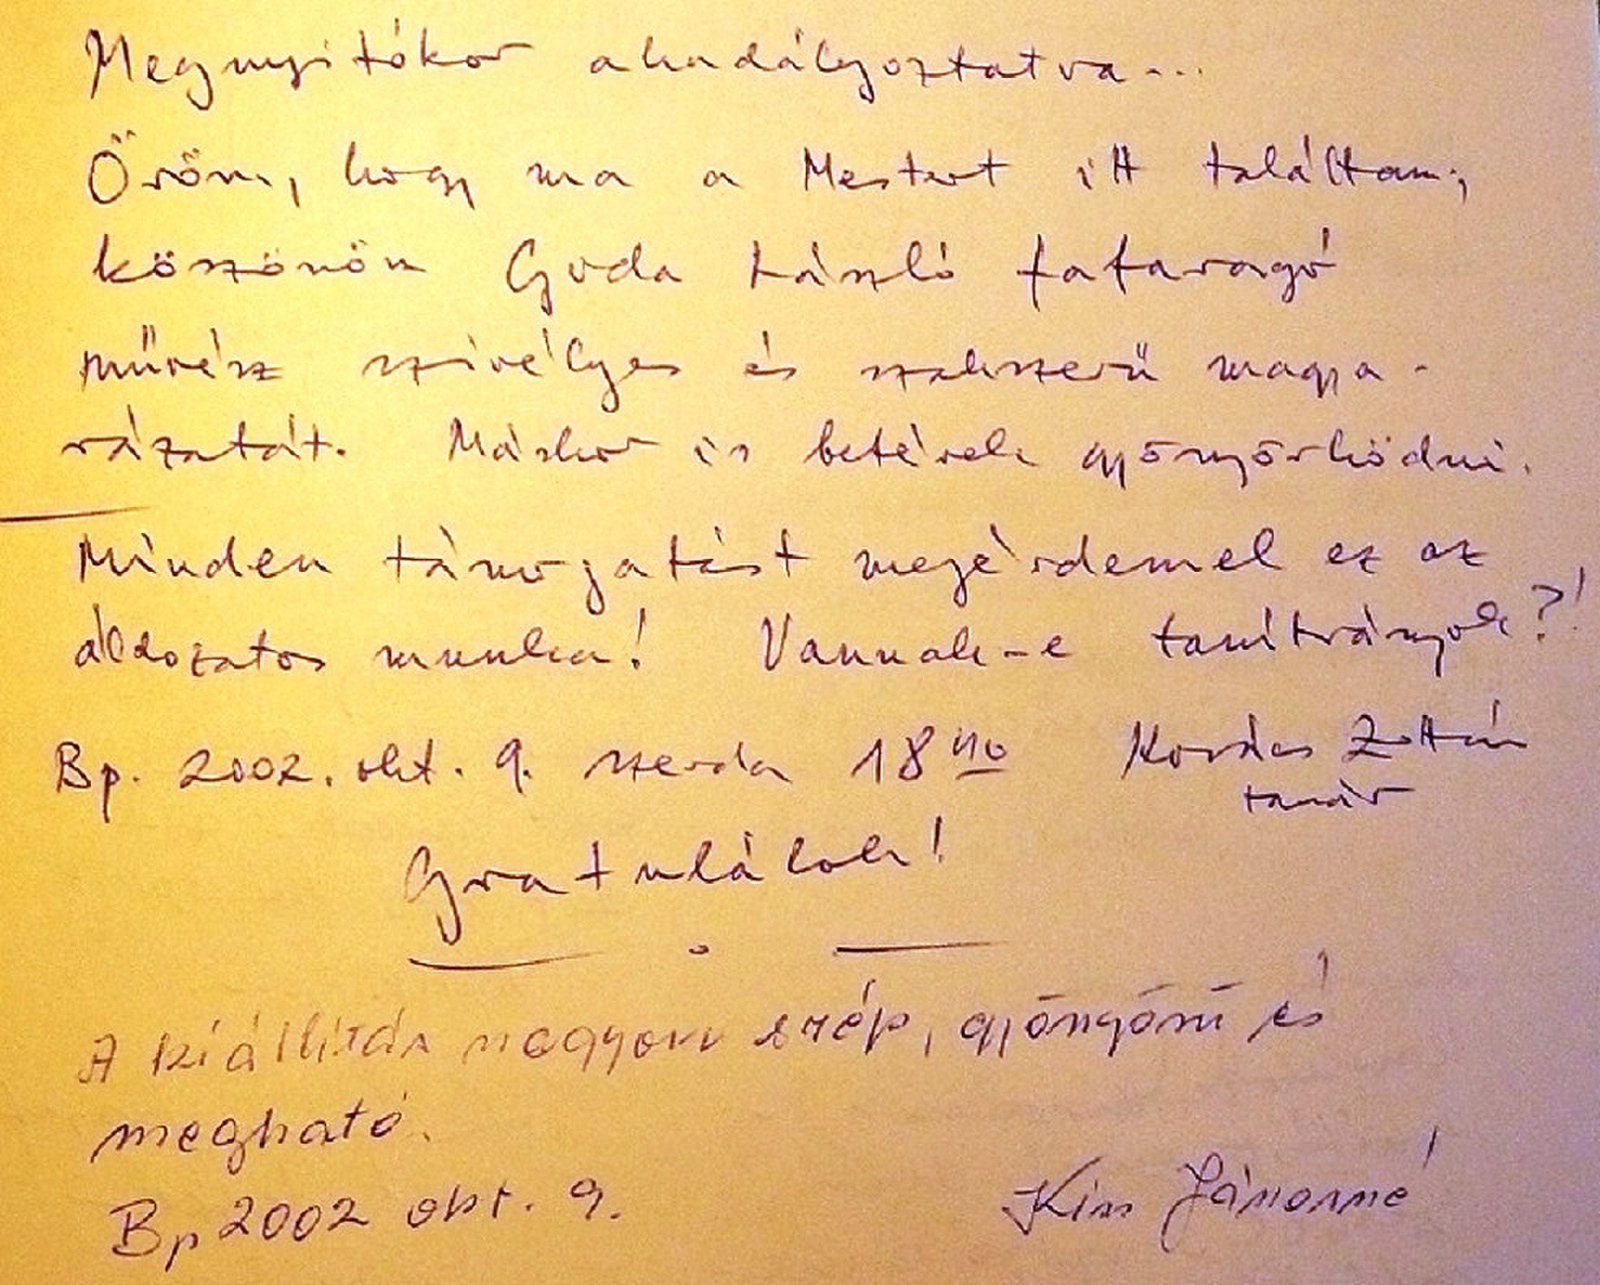 Megnyitókor akadályoztatva...
Öröm, hogy ma a Mestert itt találtam,
köszönöm Goda László fafaragó
művész szívélyes és szakszerű magya-
rázatát. Máskor is betérek gyönyörködni.
Minden támogatást megérdemel ez az
áldozatos munka! Vannak-e tanítványok?!
Bp. 2002. okt. 9. szerda 18 40 Kovács Zoltán
tanár
Gratulálok!
A kiállítás nagyon szép, gyönyörű és
megható.
Bp 2002 okt. 9. Kiss Jánosné